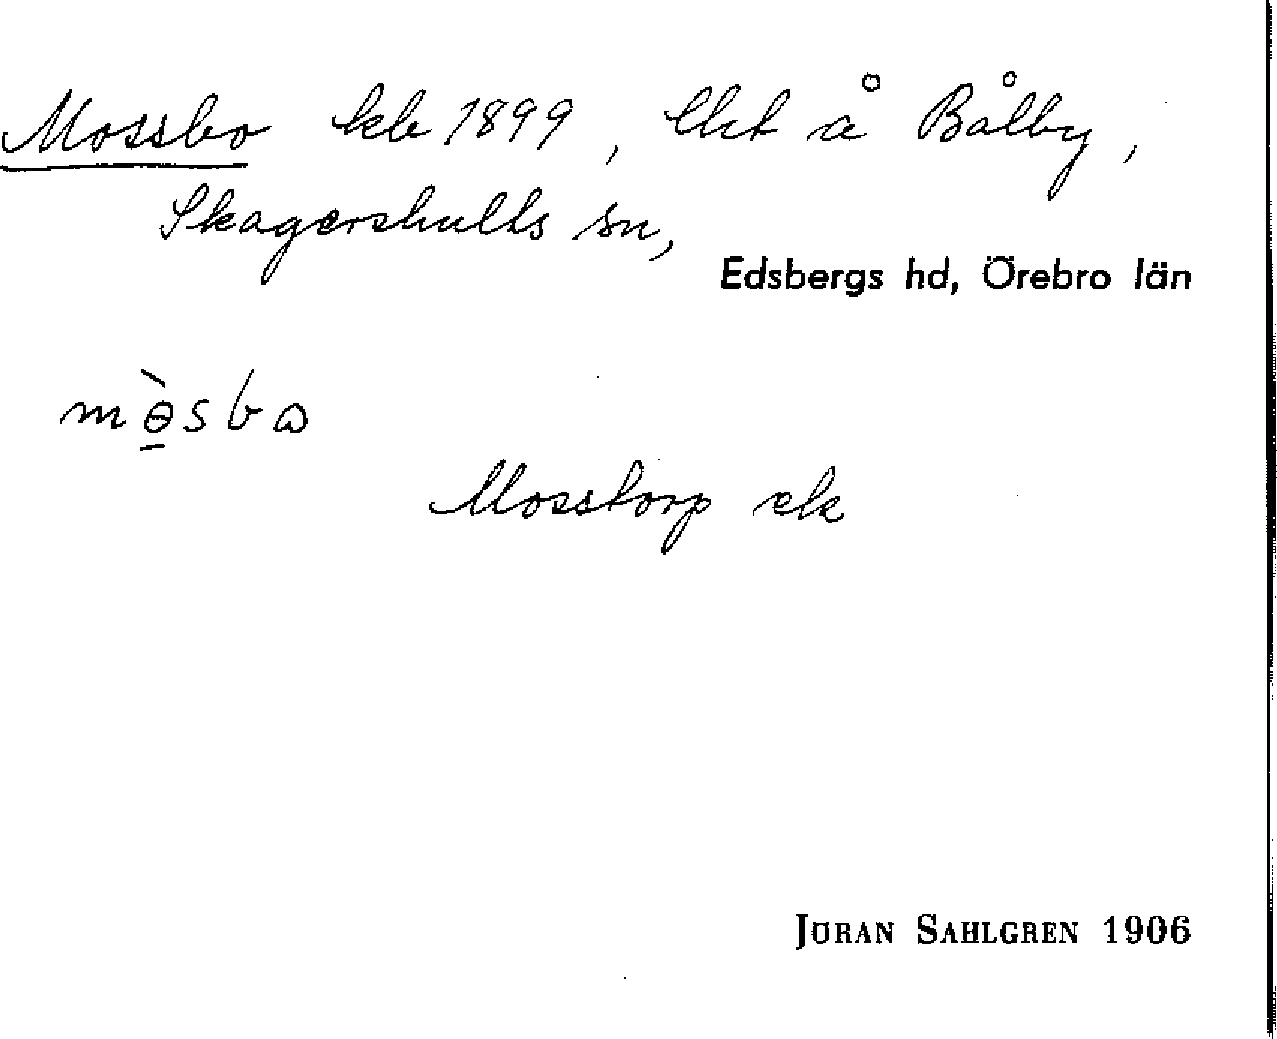 Mossbo kb 1899, lht å Bålby,
Skagershults sn,
Edsbergs hd, Örebro län
mɵ̀sbɷ
Mosstorp ek
JÖRAN SAHLGREN 1906